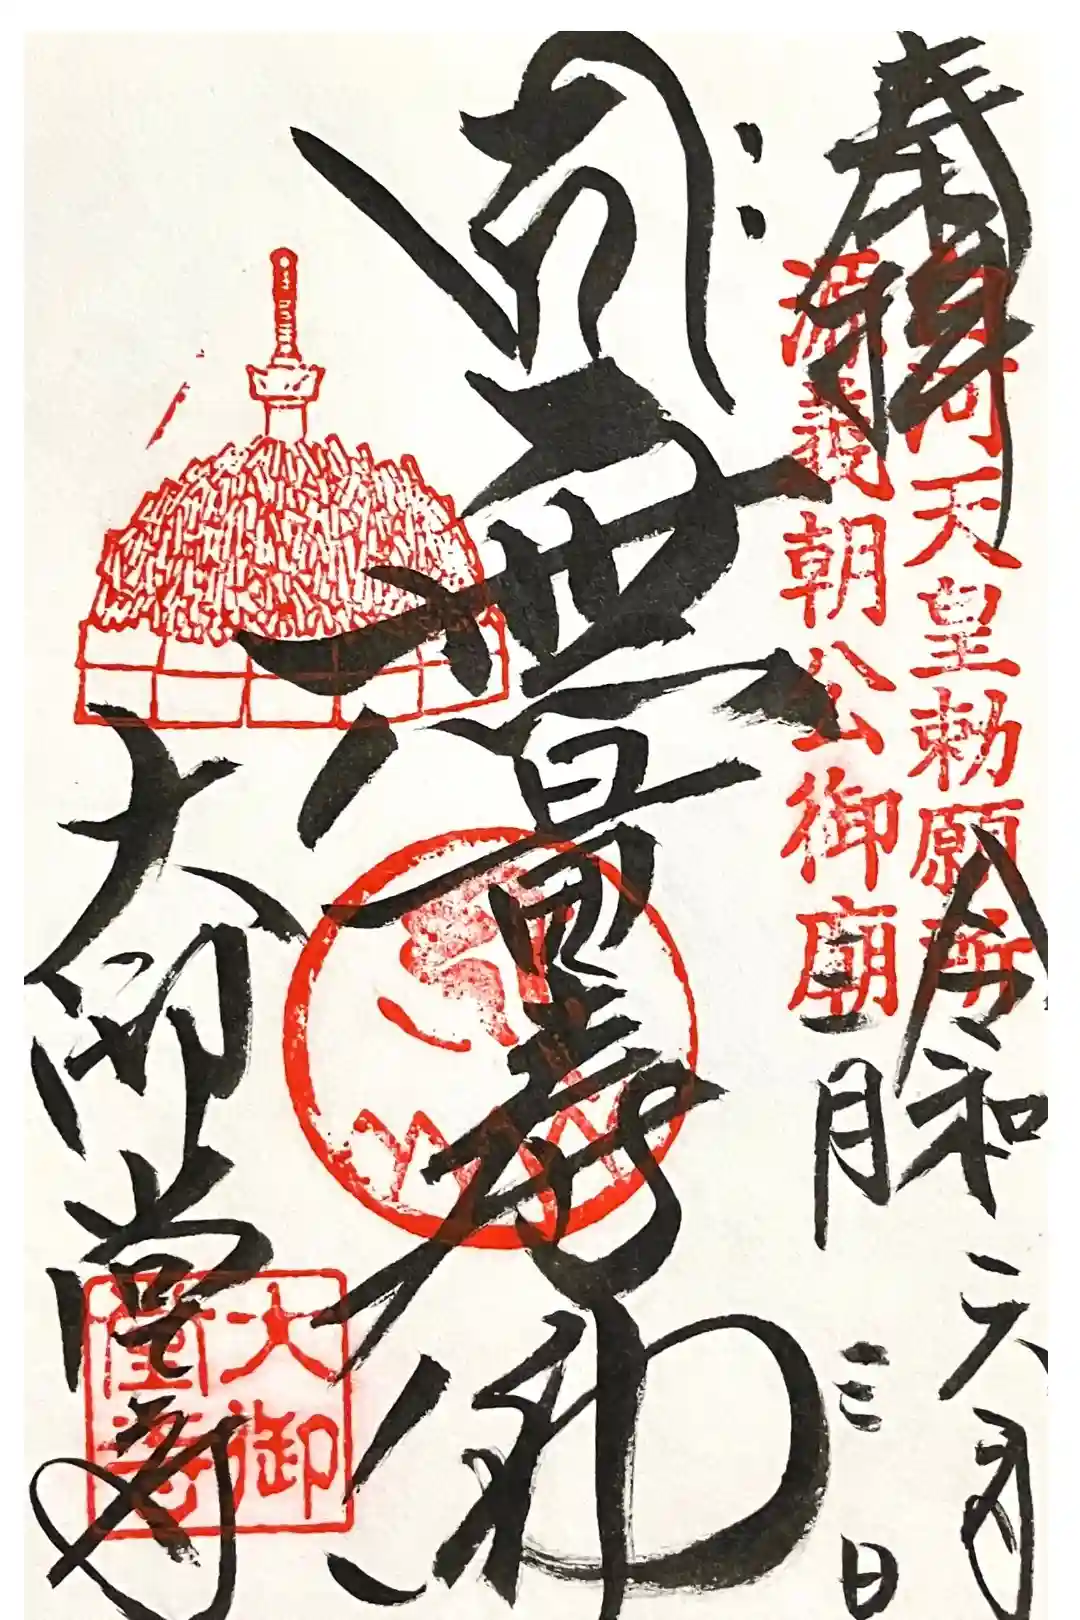 奉拝
白河天皇勅願所
源義朝公御廟
令和六年
月三日
無量寿佛
大御堂寺
大御
堂寺